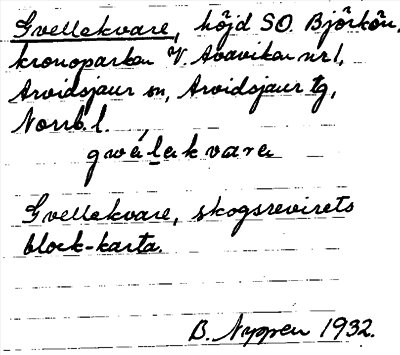 Gvellekvare, höjd SO. Björkön,
kronoparken V. Avaviken nr 1,
Arvidsjaur sn, Arvidsjaur tg,
Norrb. l.
gwélekvare
Gvellekvare, skogsrevirets
block-karta.
B. Nyppen 1932.